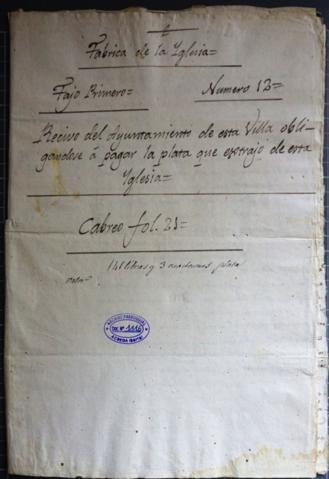 Fabrica de la Yglesia=
Fajo Primero= Numero 12=
Recivo del Ayuntamiento de esta Villa obli-
gandose á pagar la plata que extrajo de esta
Yglesia=
Cabreo fol. 21=
141 libras y 3 plata
ARCHIVO PARROQUIAL
DOC. Nº 1116